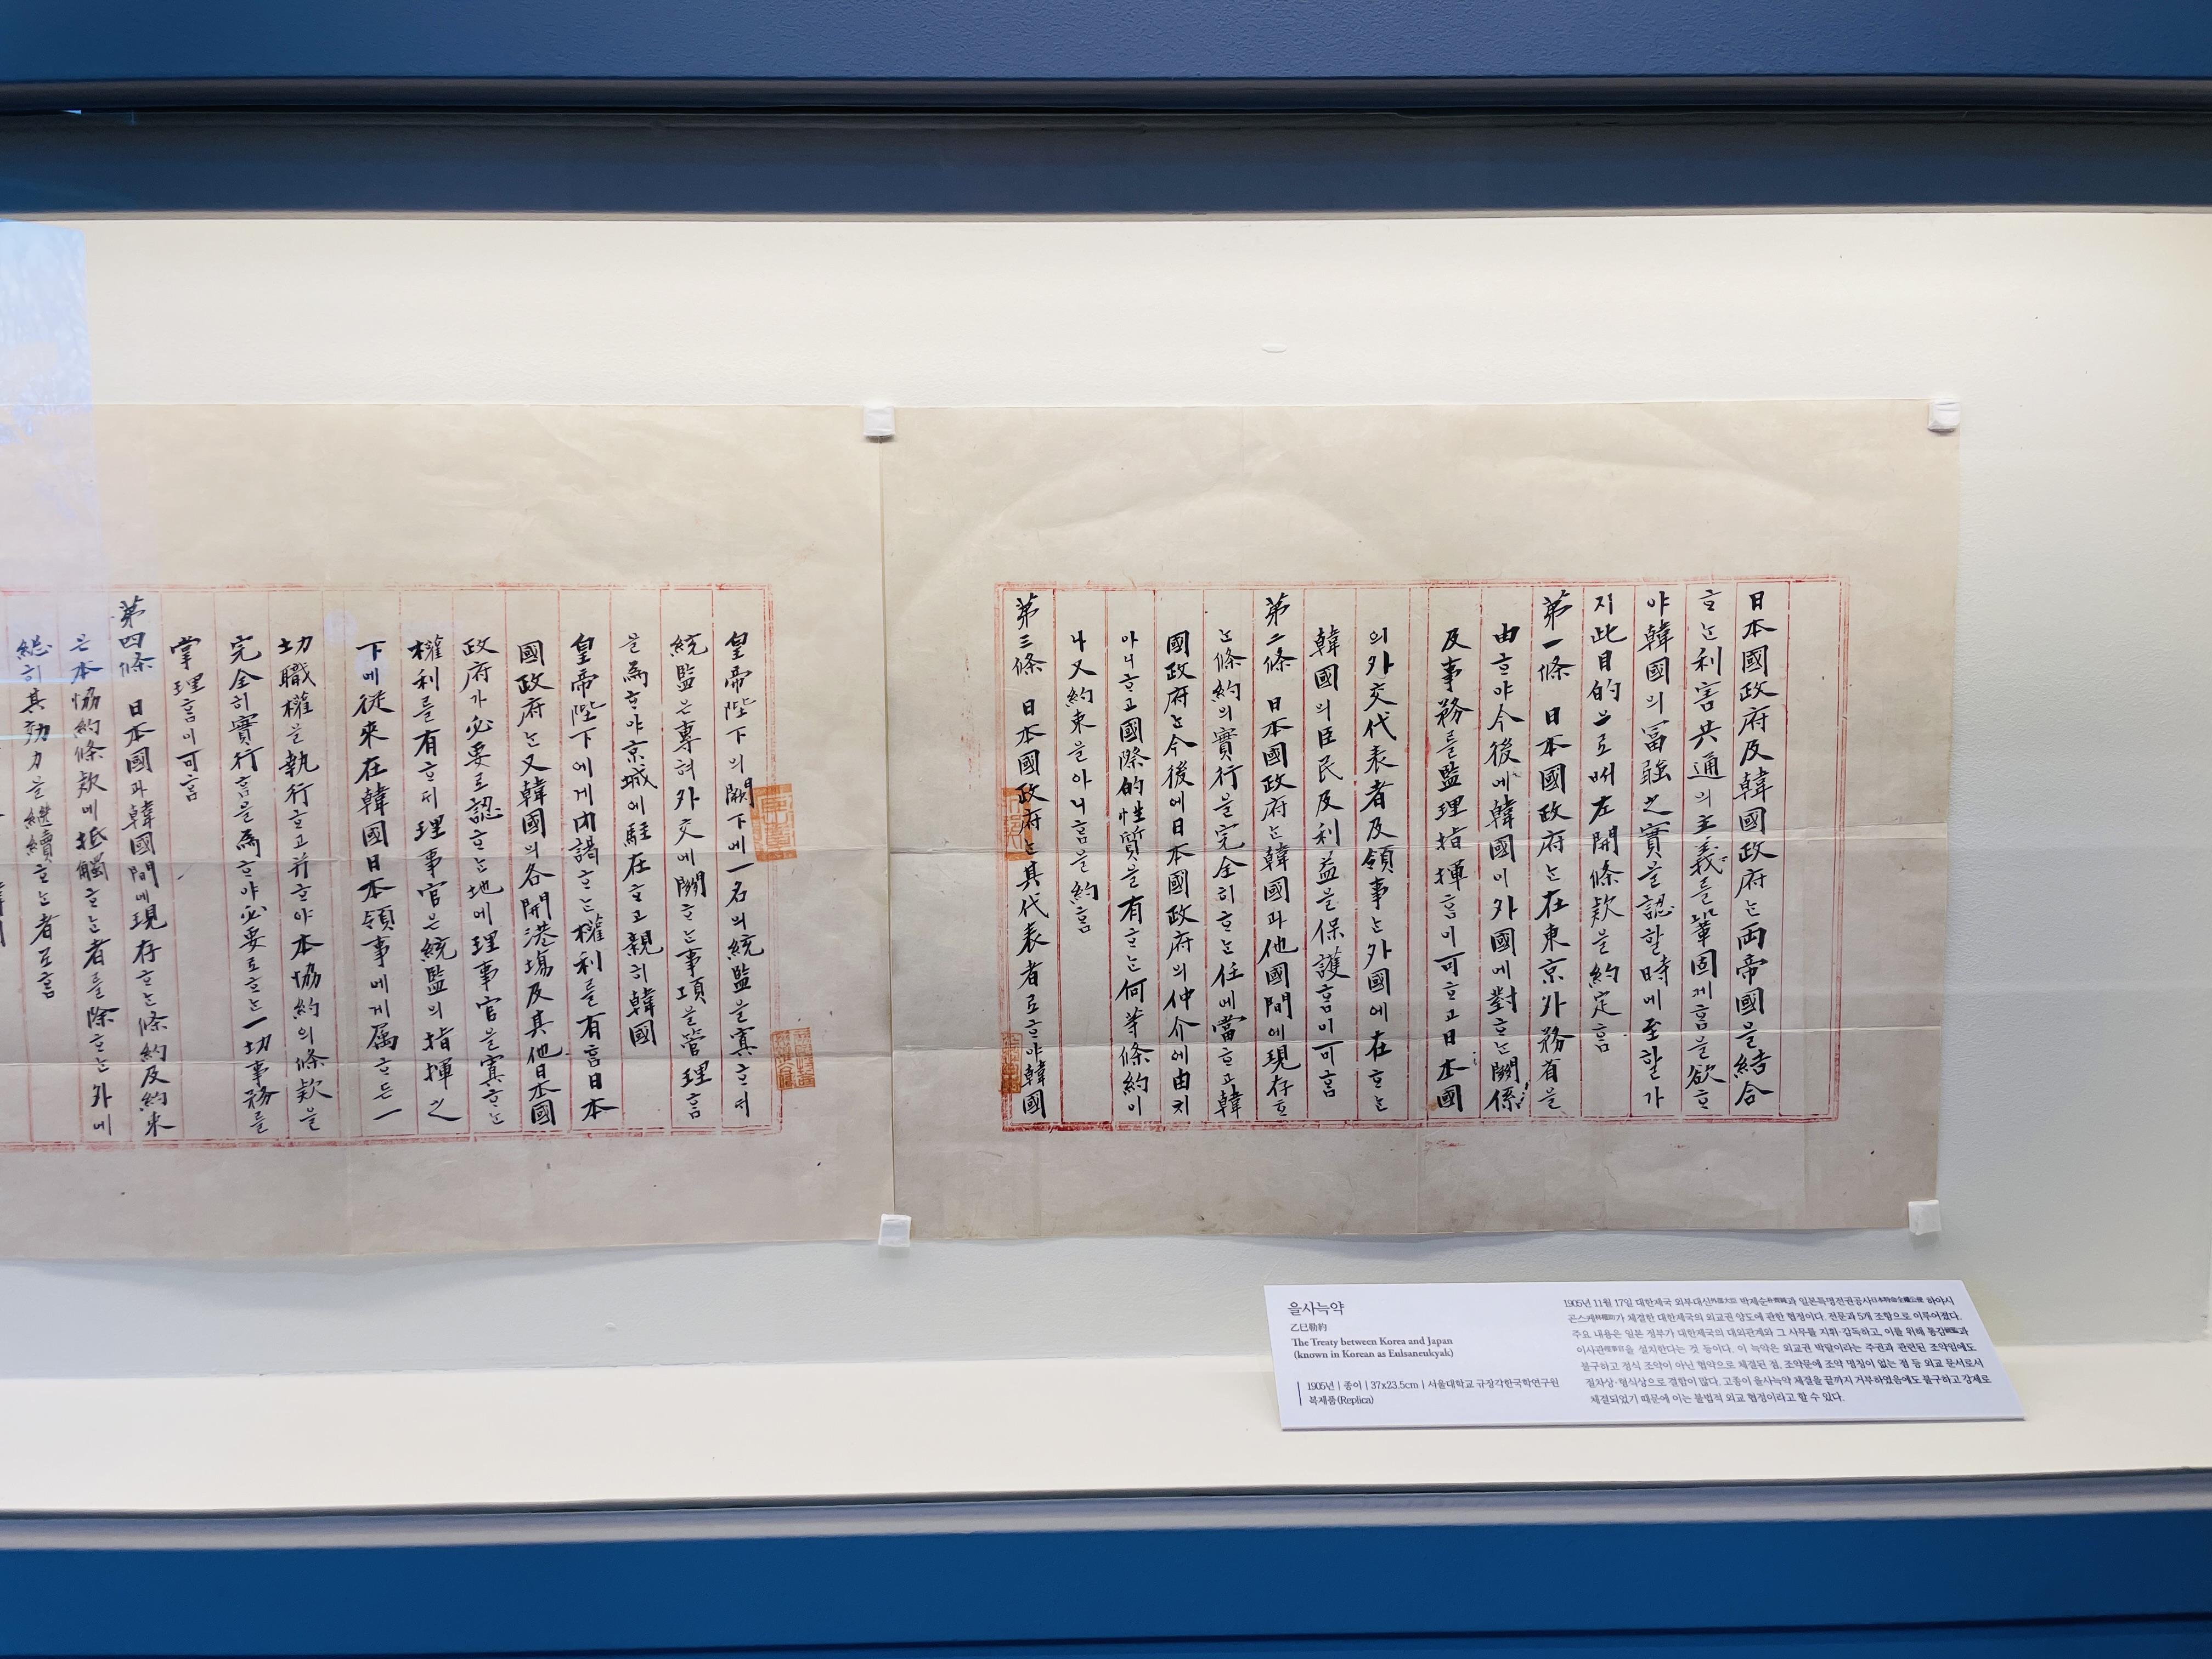 日本國政府及韓國政府는兩帝國을結合
ᄒᆞ는利害共通의主義를鞏固케홈을欲ᄒᆞ
야韓國의富強之實을認ᄒᆞᆯ時에至ᄒᆞᆯ가
지此目的으로써左開條款을約定홈
第一條 日本國政府는在東京外務省을
由ᄒᆞ야今後에韓國이外國에對ᄒᆞ는關係
及事務를監理指揮홈이可ᄒᆞ고日本國
의外交代表者及領事는外國에在ᄒᆞ는
韓國의臣民及利益을保護홈이可홈
第二條 日本國政府는韓國과他國間에現存ᄒᆞ
는條約의實行을完全히ᄒᆞ는任에當ᄒᆞ고韓
國政府는今後에日本國政府의仲介에由치
아니ᄒᆞ고國際的性質을有ᄒᆞ는何等條約이
나又約束을아니홈을約홈
第三條 日本國政府는其代表者로ᄒᆞ야韓國
皇帝陛下의闕下에一名의統監을寘ᄒᆞ되
統監은專혀外交에關ᄒᆞ는事項을管理홈
을爲ᄒᆞ야京城에駐在ᄒᆞ고親히韓國
皇帝陛下에게內謁ᄒᆞ는權利를有홈日本
國政府는又韓國의各開港場及其他日本國
政府가必要로認ᄒᆞ는地에理事官을寘ᄒᆞ는
權利를有ᄒᆞ되理事官은統監의指揮之
下에從來在韓國日本領事에게屬ᄒᆞ든一
切職權을執行ᄒᆞ고幷ᄒᆞ야本協約의條款을
完全히實行홈을爲ᄒᆞ야必要로ᄒᆞ는一切事務를
掌理홈이可홈
第四條 日本國과韓國間에現存ᄒᆞ는條約及約束
은本協約條款에抵觸ᄒᆞ는者를除ᄒᆞ는外에
總히其効力을繼續ᄒᆞ는者로홈
을사늑약
乙巳勒約
The Treaty between Korea and Japan
(known in Korean as Eulsaneukyak)
1905년 | 종이 | 37x23.5cm | 서울대학교 규장각한국학연구원
복제품(Replica)
1905년 11월 17일 대한제국 외부대신外部大臣 박제순朴齊純과 일본특명전권공사日本特命全權公使 하야시
곤스케林權助가 체결한 대한제국의 외교권 양도에 관한 협정이다. 전문과 5개 조항으로 이루어졌다.
주요 내용은 일본 정부가 대한제국의 대외관계와 그 사무를 지휘·감독하고, 이를 위해 통감統監과
이사관理事官을 설치한다는 것 등이다. 이 늑약은 외교권 박탈이라는 주권과 관련된 조약임에도
불구하고 정식 조약이 아닌 협약으로 체결된 점, 조약문에 조약 명칭이 없는 점 등 외교 문서로서
절차상·형식상으로 결함이 많다. 고종이 을사늑약 체결을 끝까지 거부하였음에도 불구하고 강제로
체결되었기 때문에 이는 불법적 외교 협정이라고 할 수 있다.